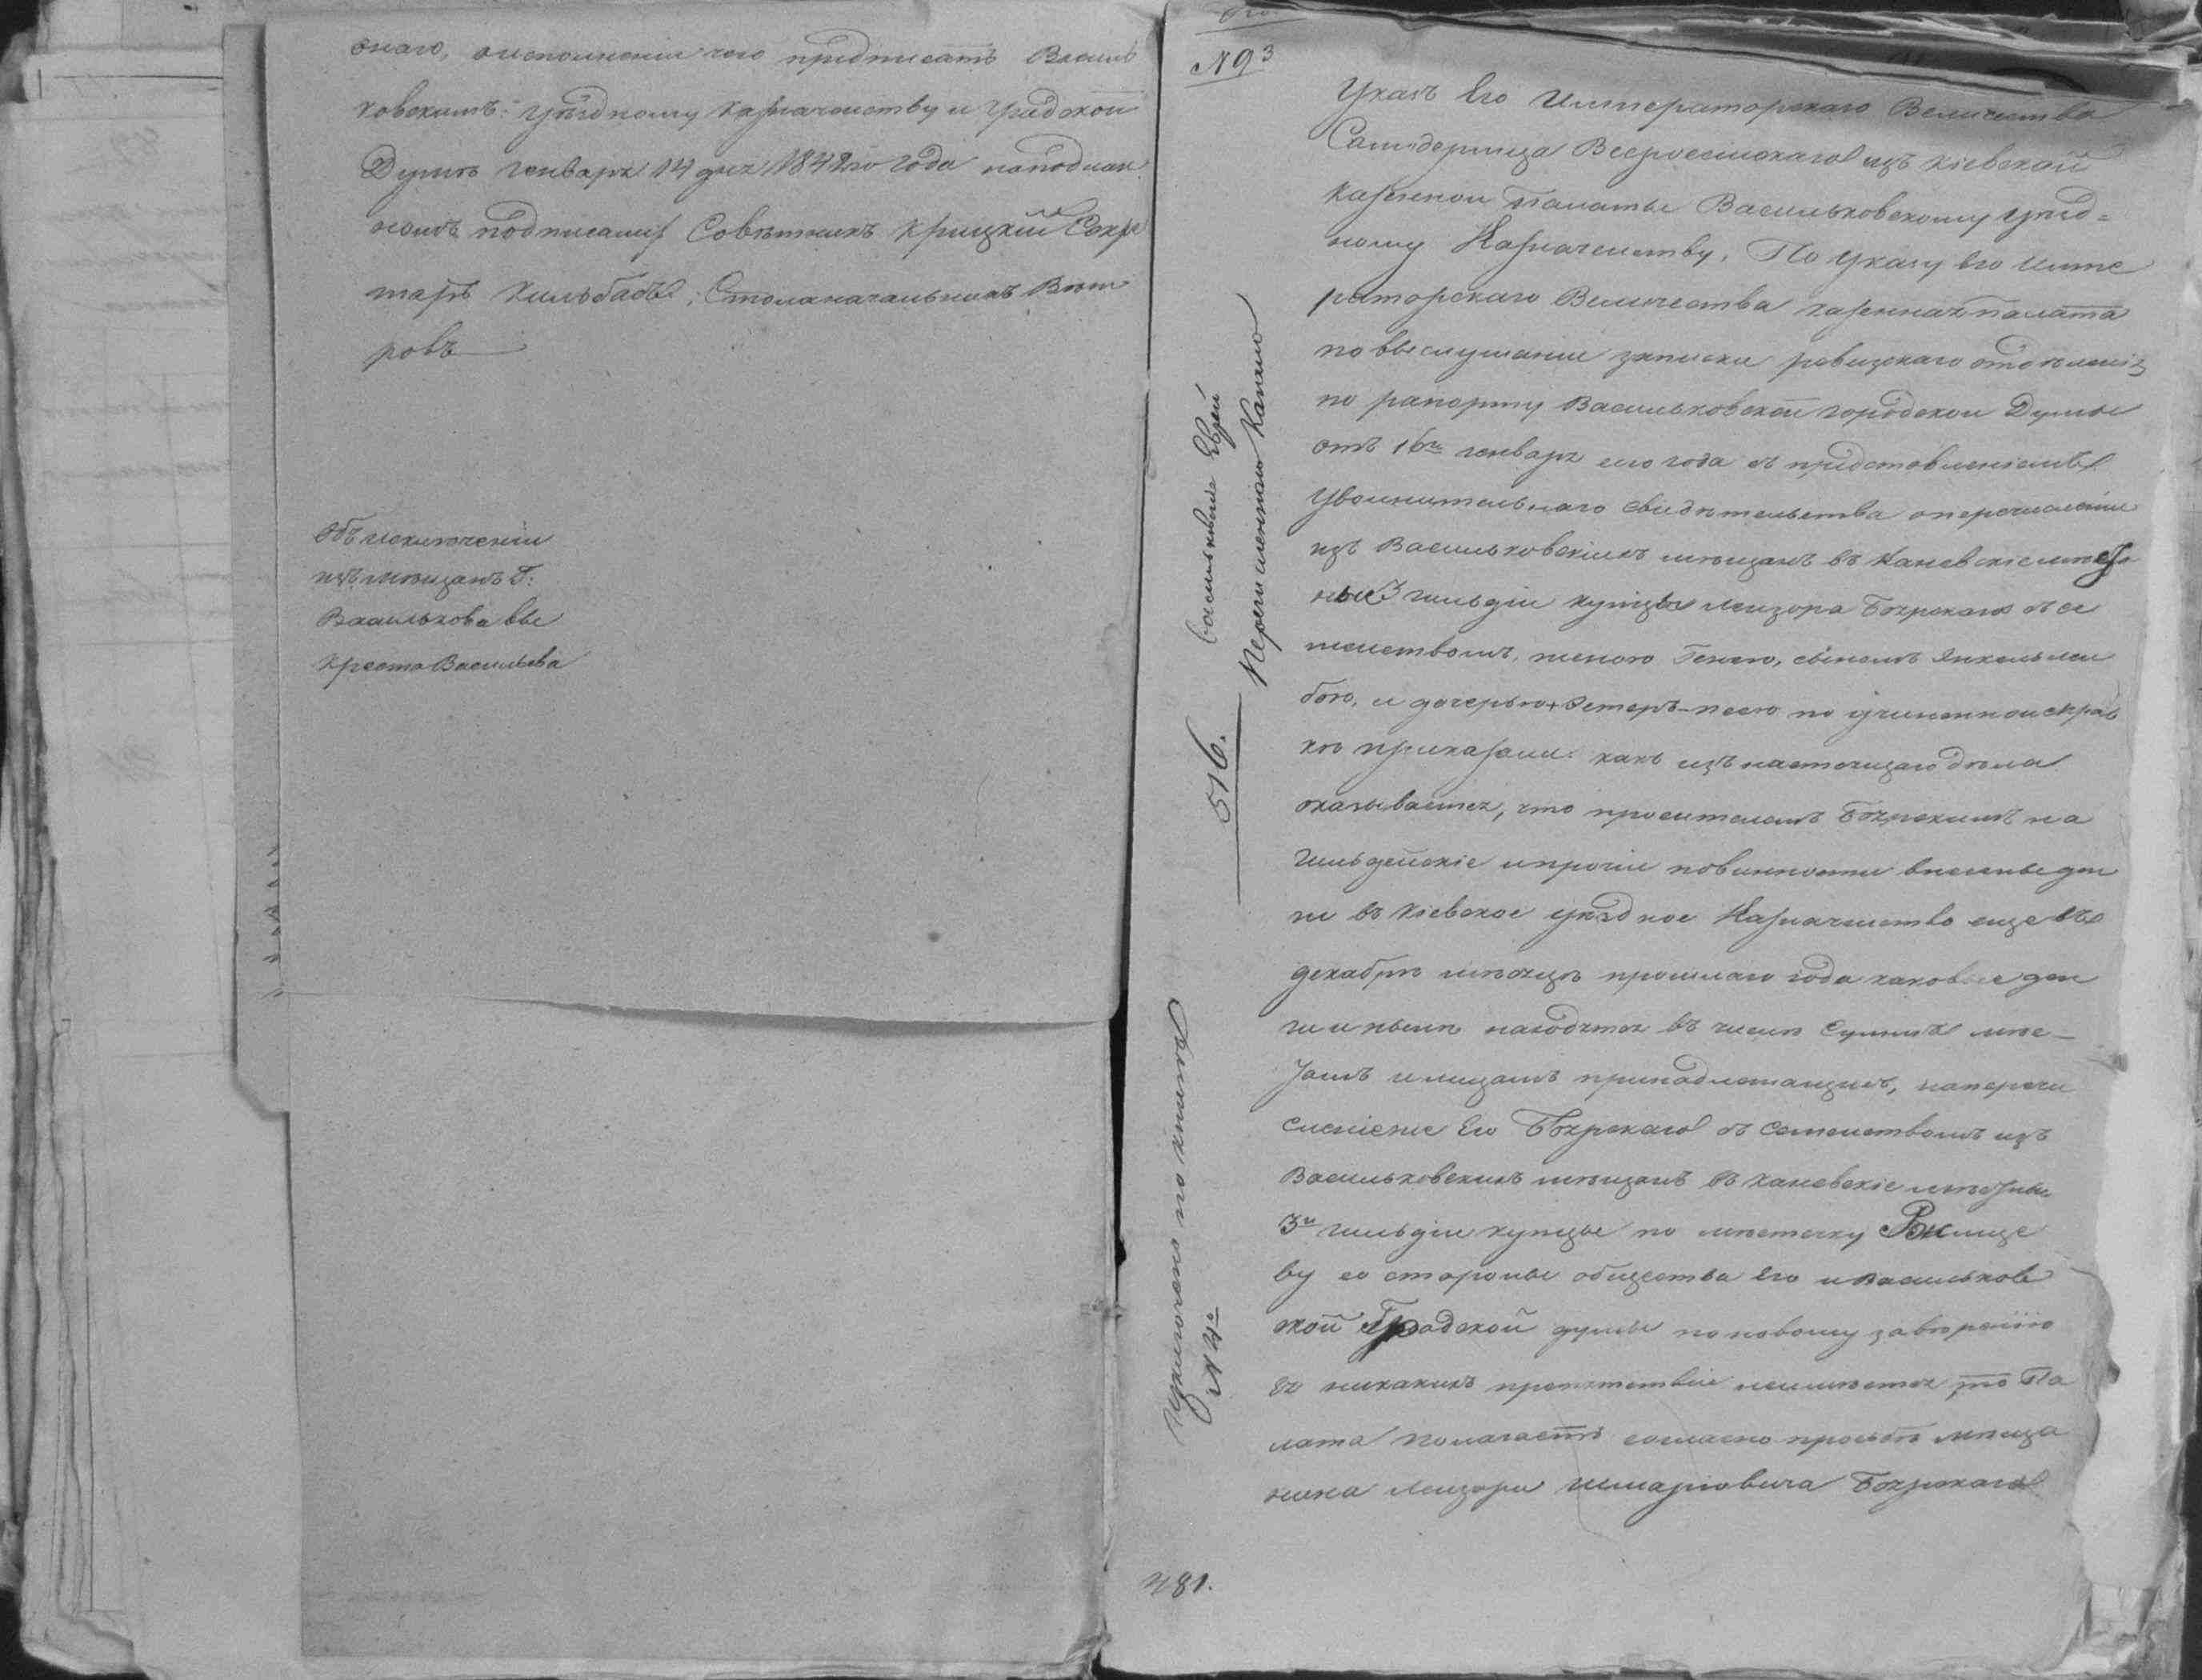 онаго, о исполненіи чего предписать Василь
ковскимъ: уѣздному казначейству и градской
Думѣ генваря 14 дня 1848го года на подлин
номъ подписали Совѣтникъ Крицкій Секре
тарь Столоначальникъ Вѣт
ровъ
Объ исключеніи
изъ мѣщанъ Г:
Василькова вы
креста Васильева
№ 93
Указъ Его Императорскаго Величества
Самодержца Всероссійскаго изъ Кіевской
казенной Палаты Васильковскому уѣзд=
ному Казначейству. По Указу Его Импе
раторскаго Величества казенная палата
по выслушаніи записки ревизскаго отдѣленія
по рапорту Васильковской городской Думы
отъ 16го генваря сего года съ представленіемъ
увольнительнаго свидѣтельства о перечисленіи
изъ Васильковскихъ мѣщанъ въ Каневскіе
3 гильдіи купцы Лейзора Боярскаго съ се
мействомъ, женою Генею, сыномъ Янкель лей
бою, и дочерью Эстеръ по учиненной справ
кѣ приказали: какъ изъ настоящаго дѣла
оказывается, что просителемъ Боярскимъ на
гильдейскіе и прочіи повинности внесены ден
ги въ Кіевское уѣздное Казначейство еще въ
декабрѣ мѣсяцѣ прошлаго года каковые ден
ги и нынѣ находятся въ числѣ суммъ мѣс-
тамъ и лицамъ принадлежащихъ, на перечи
сленіе Его Боярскаго съ семействомъ изъ
Васильковскихъ мѣщанъ въ Каневскіе
3й гильдіи купцы по мѣстечку
ву со стороны общества Его и Васильков
ской Градской думы по новому завѣренію
Ея никакихъ препятствіе неимѣется то Па
лата полагаетъ согласно прозьбѣ мѣща
нина Лейзора Шмаріовича Боярскаго
васильковые Евреи
Перечисленіемъ Канево
516.
Исключено по книгѣ
№ 4й
281.